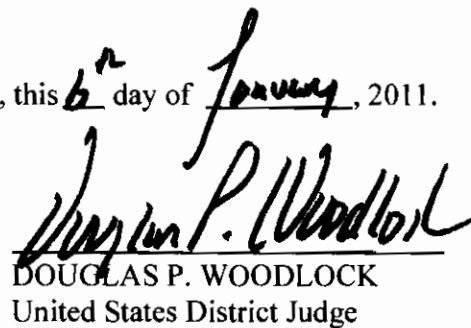 , this 6th day of January, 2011.
Douglas P. Woodlock
DOUGLAS P. WOODLOCK
United States District Judge